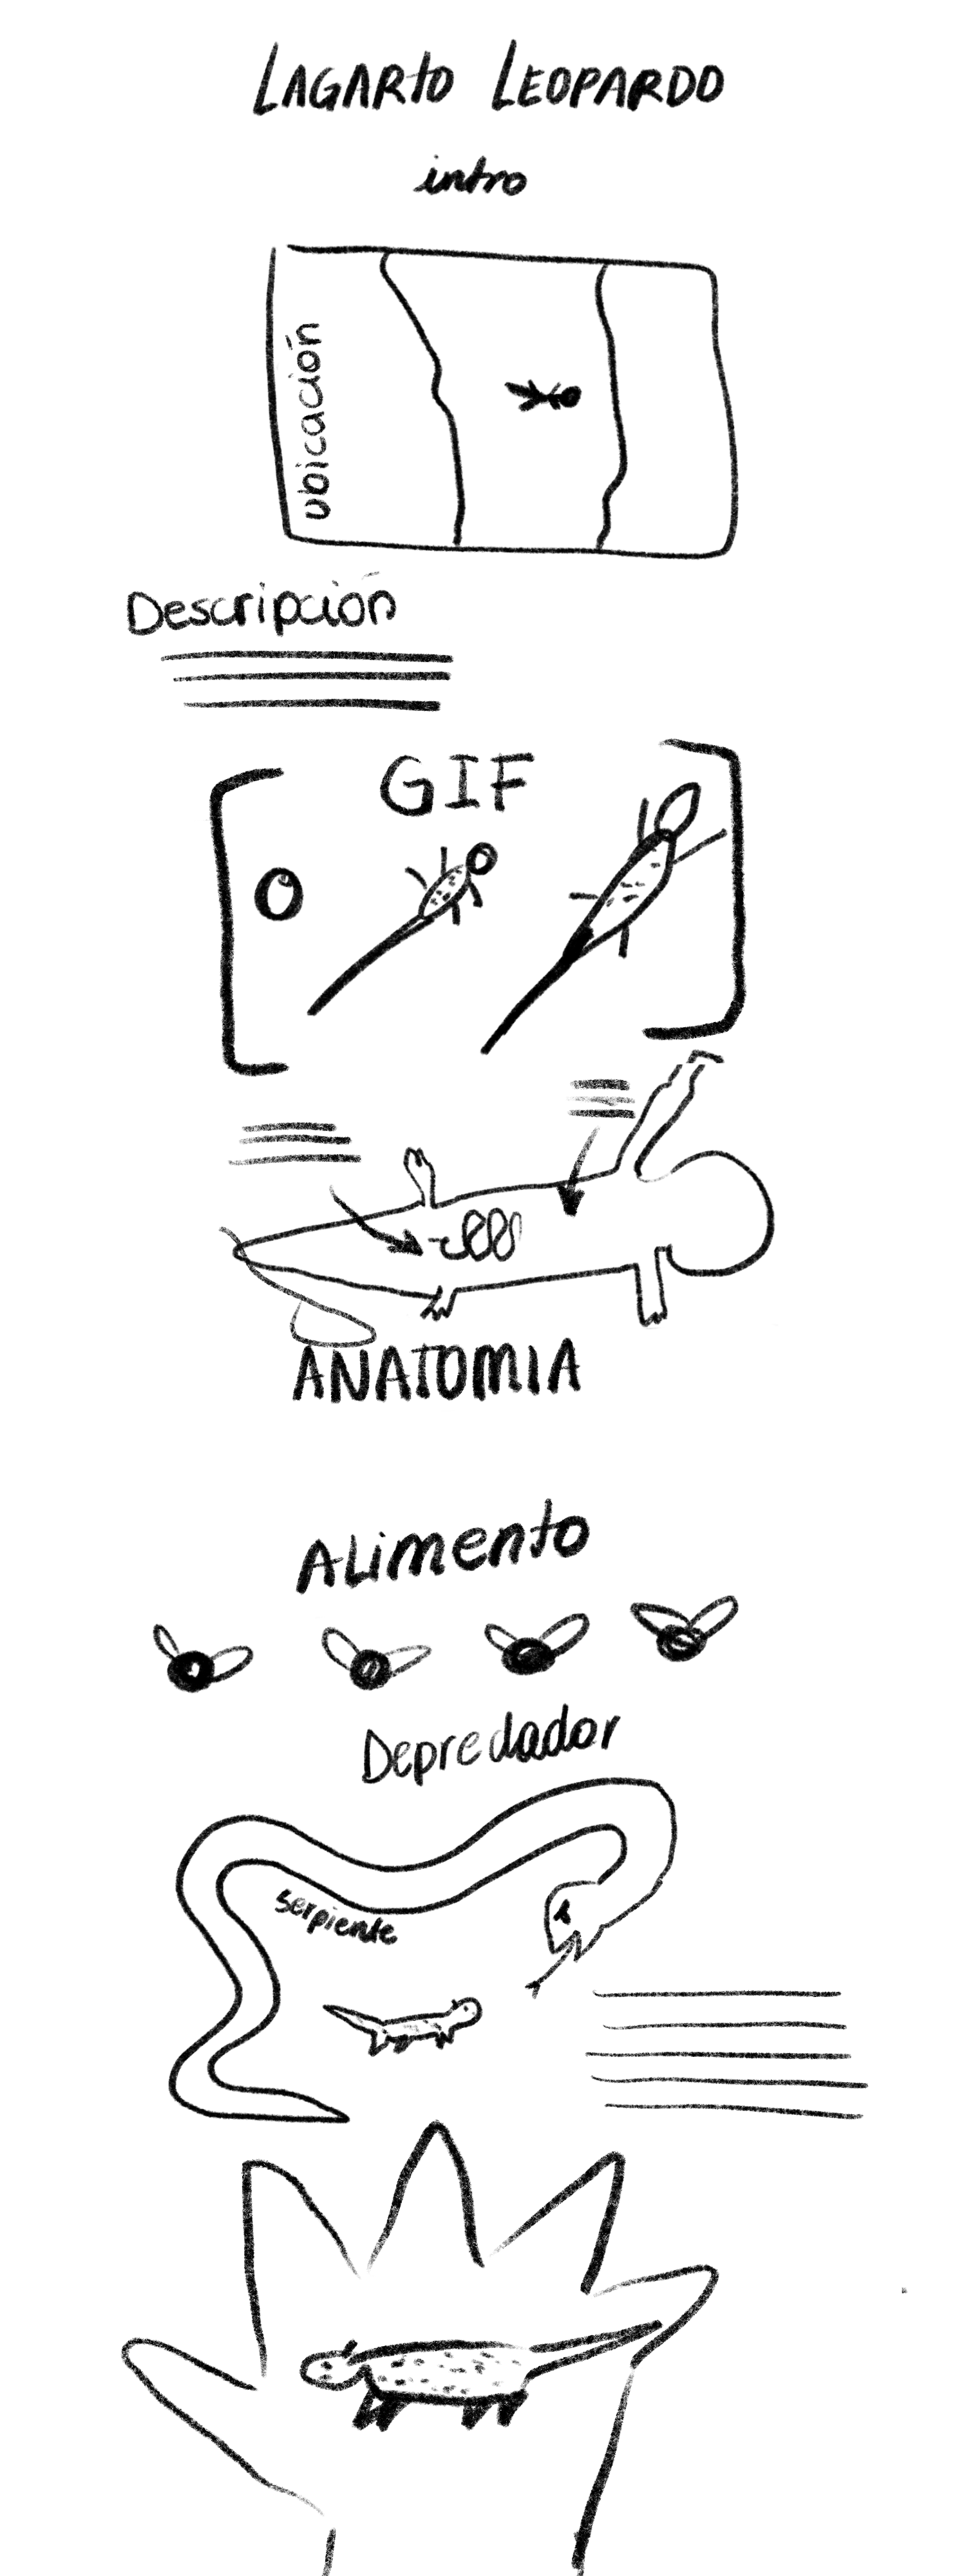 LAGARTO LEOPARDO
intro
ubicación
Descripción
GIF
ANATOMIA
ALimento
Depredador
serpiente